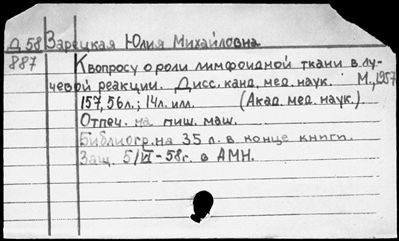 Д 58 Зарецкая Юлия Михайловна
887
К вопросу о роли лимфоидной ткани в лу-
чевой реакции. Дисс. канд. мед. наук. М., 1957
157, 56 л.; 14 л. илл. (Акад. мед. наук.).
Отпеч. на пиш. маш.
Библиогр. на 35 л. в конце книги.
Защ. 5/VI-58г. в АМН.